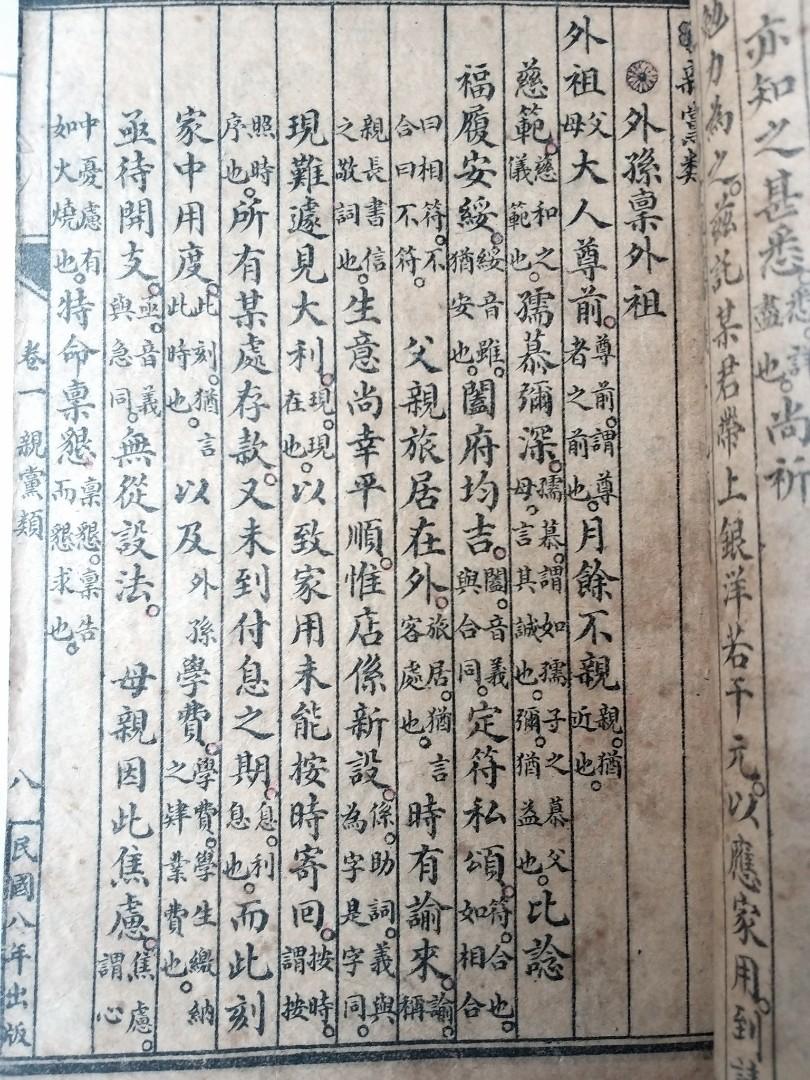 亦知之甚悉。悉。詳盡也。尚祈
勉力為之。茲託某君帶上銀洋若干元。以應家用。到請
親黨類
外孫稟外祖
外祖父母大人尊前。尊前。謂尊者之前也。月餘不親親。猶近也。
慈範。慈和之儀範也。孺慕彌深。孺慕。謂如孺子之慕父母。言其誠也。彌。猶益也。比諗
福履安綏。綏音雖。猶安也。闔府均吉。闔。音義與合同。定符私頌。符。合也。如相合
曰相符。不合曰不符。 父親旅居在外。旅居。猶言客處也。 時有諭來。諭。稱
親長書信之敬詞也。生意尚幸平順。惟店係新設。係。助詞。義與為字是字同。
現難遽見大利。現。現在也。以致家用未能按時寄回。按時。謂按
照時序也。所有某處存款。又未到付息之期。息。利息也。而此刻
家中用度。此刻。猶言此時也。 以及外孫學費。學費。學生繳納之肄業費也。
亟待開支。亟。音義與急同。無從設法。 母親因此焦慮。焦慮。謂心
中憂慮有如火燒也。特命稟懇。稟懇。稟告而懇求也。
卷一 親黨類 八 民國八年出版